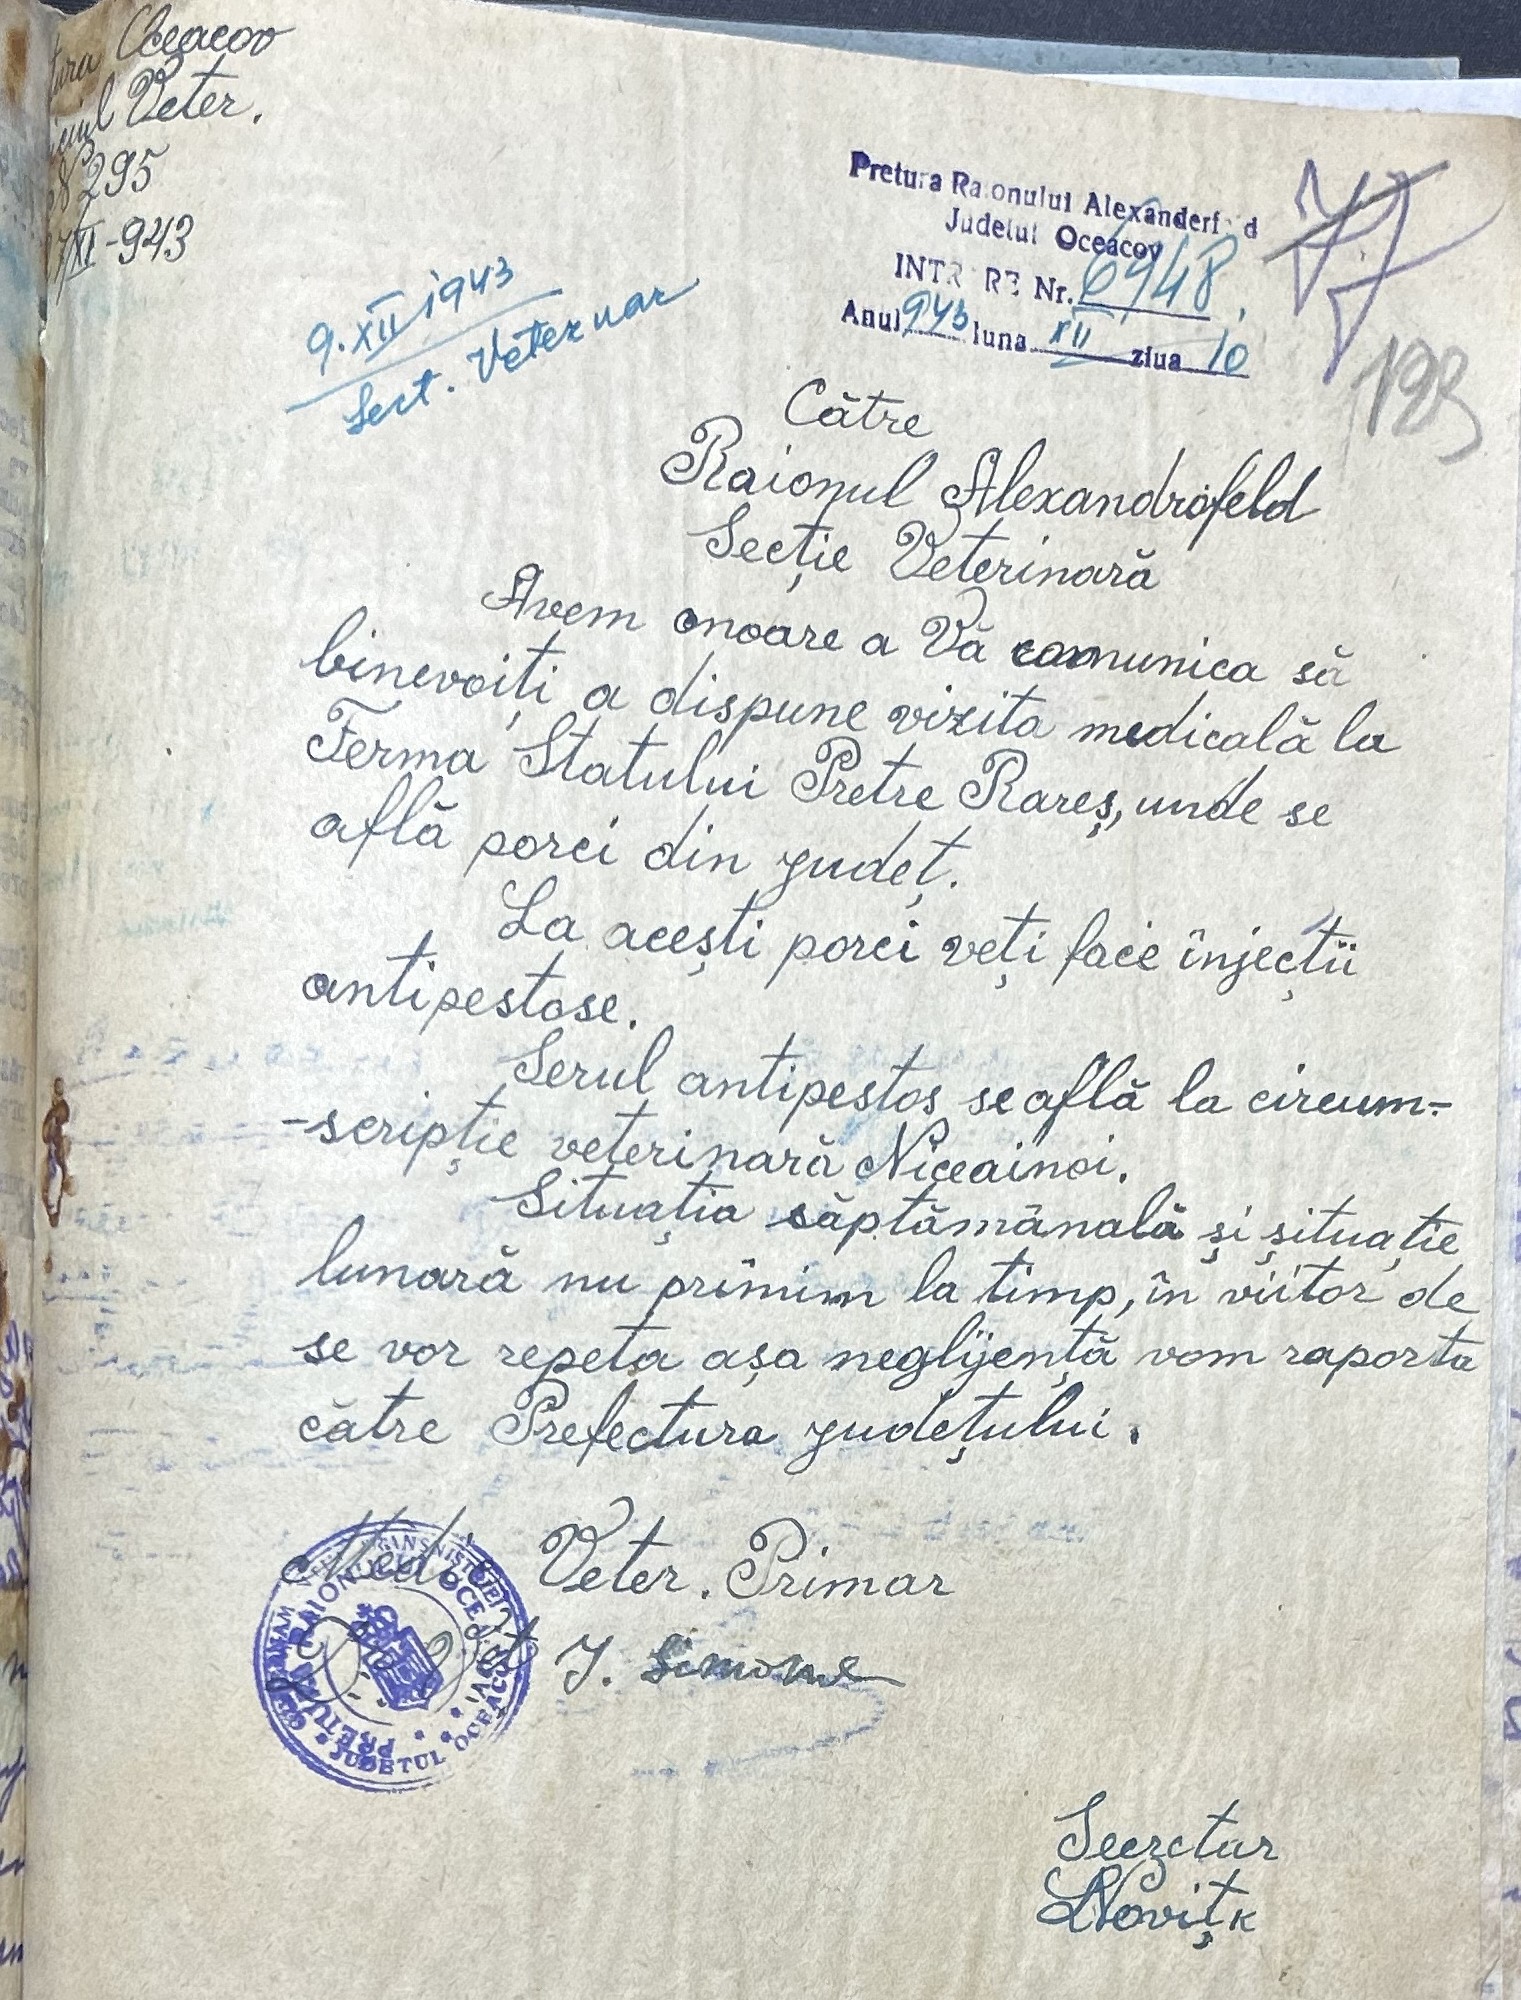 Oceacov
Veter.
295
XI-943
9.XII 1943
Sect. Veterinar
Pretura Raionului Alexanderf d
Judetul Oceacov
INTR RE Nr. 6948
Anul 943 luna XII ziua 10
77
193
Cătră
Raionul Alexandrofeld
Secție Veterinară
Avem onoare a Vă comunica să
binevoiți a dispune vizita medicală la
Ferma Statului Pretre Rareș, unde se
află porci din județ.
La acești porci veți face înjecții
antipestose.
Serul antipestos se află la circum-
-scripție veterinară Niceainoi.
Situația săptămânală și situație
lunară nu primim la timp, în viitor de
se vor repeta așa neglijență vom raporta
cătră Prefectura județului.
Medic Veter. Primar
J. Simone
PRETURA RAIONULUI OCEACOV
JUDETUL OCEACOV
Secretar